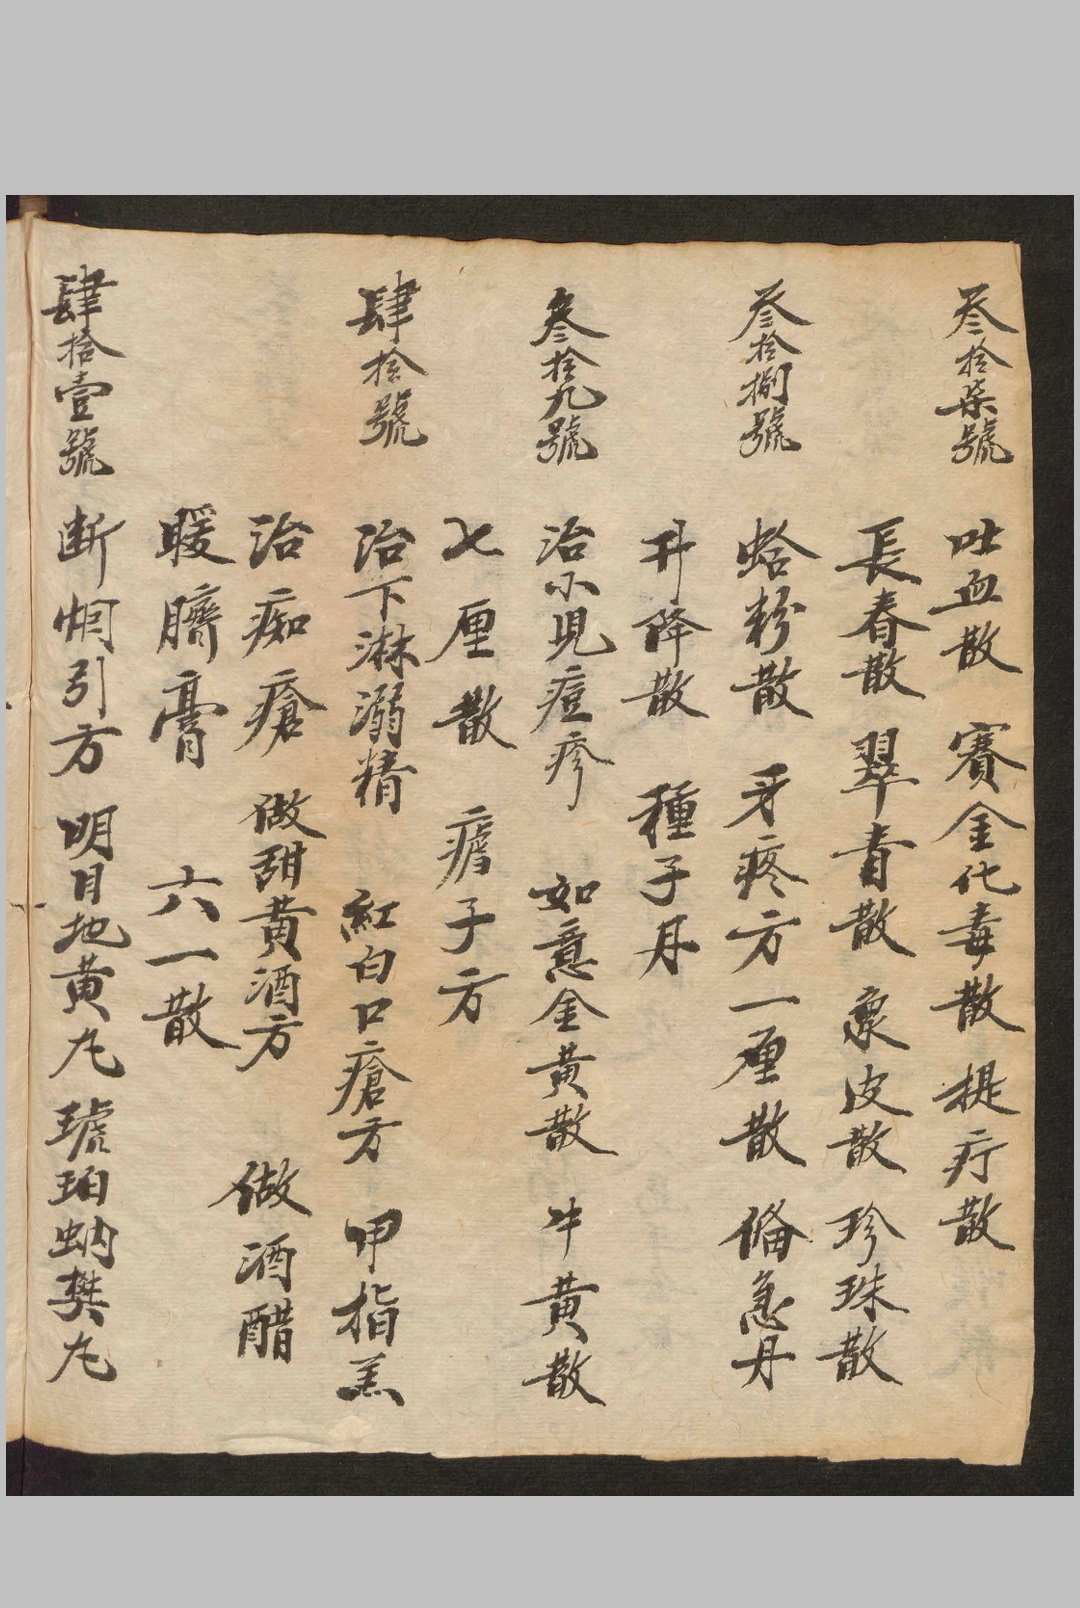 叁拾柒號 吐血散 賽金化毒散 提疔散
長春散 翠青散 皮散 珍珠散
叁拾捌號 蛤粉散 牙疼方 一厘散 偹急丹
升降散 種子丹
叁拾九號 治小児痘疹 如意金黄散 牛黄散
七厘散 子方
肆拾號 治下淋溺精 紅白口瘡方 甲指羔
治痴瘡 做甜黄酒方 做酒醋
暖臍膏 六一散
肆拾壹號 断烟引方 明目地黄丸 琥珀蚋樊丸